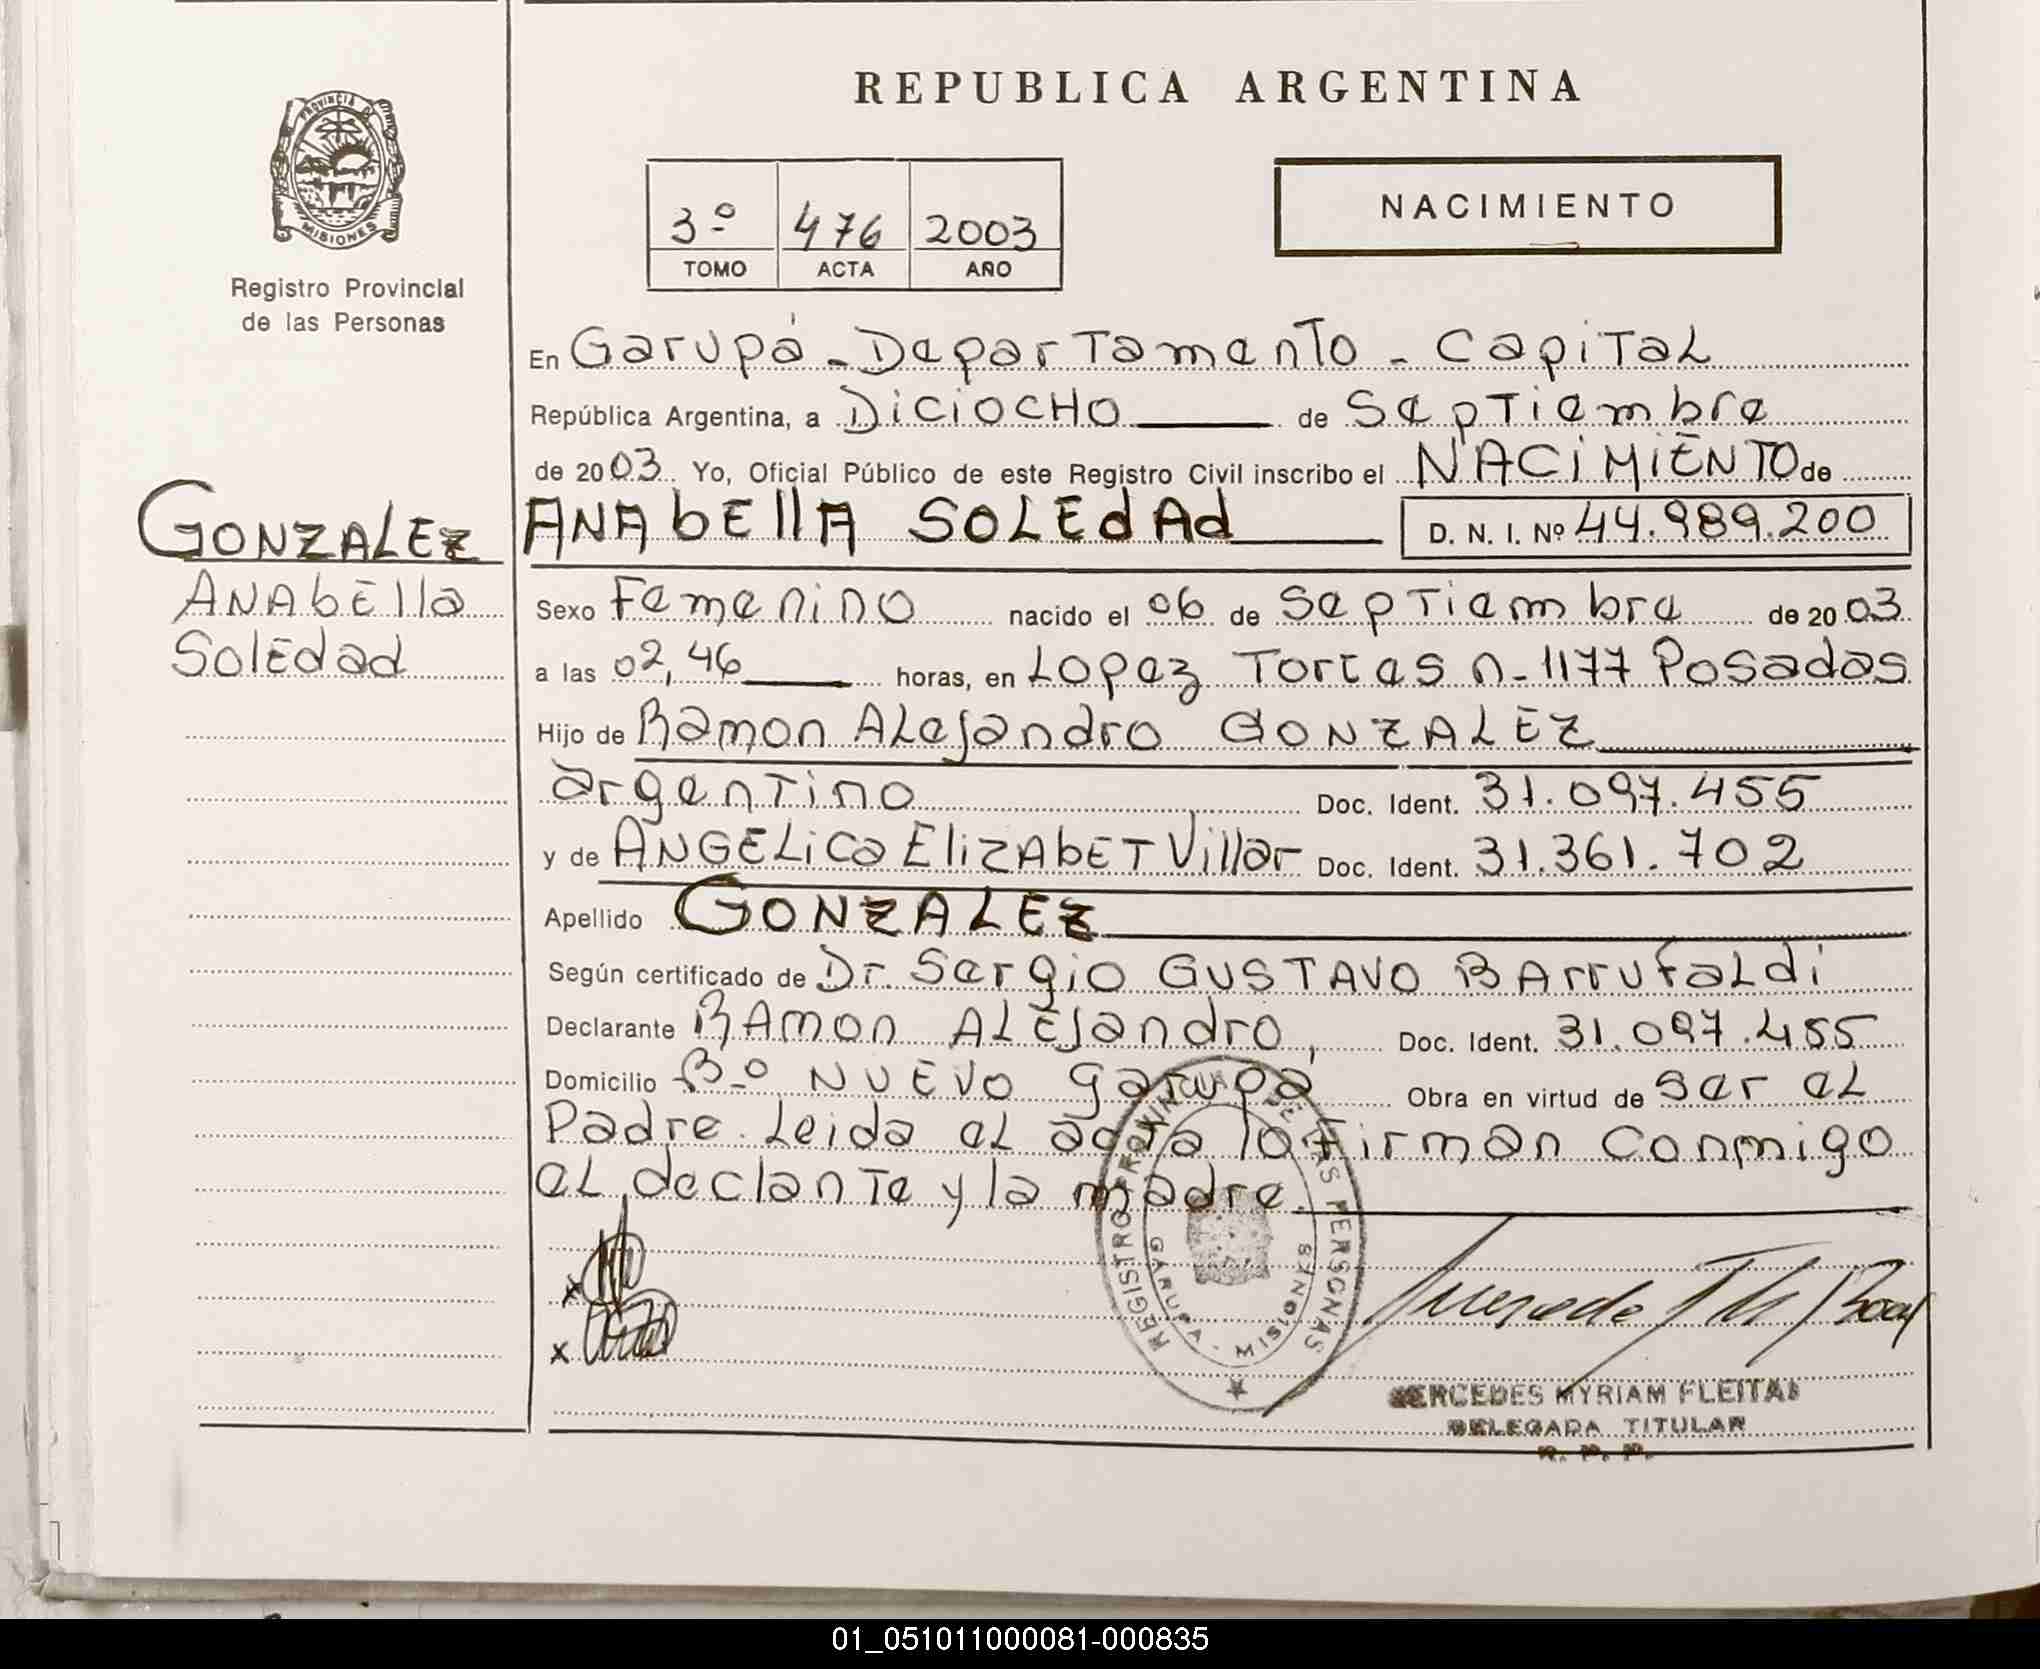 REPUBLICA ARGENTINA
PROVINCIA DE
MISIONES
Registro Provincial
de las Personas
3º 476 2003
TOMO ACTA AÑO
NACIMIENTO
En Garupá - Departamento - Capital
República Argentina, a Diciocho de Septiembre
de 2003 Yo, Oficial Público de este Registro Civil inscribo el NACIMIENTO de
GONZALEZ
ANAbEllA
SolEdad
ANAbEllA SOLEdAd D. N. I. Nº 44.989.200
Sexo Femenino nacido el 06 de Septiembre de 2003
a las 02,46 horas, en Lopez Torres n-1177 Posadas
Hijo de Ramon Alejandro GONZALEZ
argentino Doc. Ident. 31.097.455
y de ANGELica ElizAbET Villar Doc. Ident. 31.361.702
Apellido GONZALEZ
Según certificado de Dr. Sergio GUSTAVO BArrufaldi
Declarante RAmon ALEJandro, Doc. Ident. 31.097.455
Domicilio Bº NUEVO garupá Obra en virtud de ser el
Padre. Leida el acta lo firman conmigo
el declante y la madre.
REGISTRO PROVINCIAL DE LAS PERSONAS
GARUPA - MISIONES
x
x
MERCEDES MYRIAM FLEITAS
DELEGADA TITULAR
R. P. P.
01_051011000081-000835